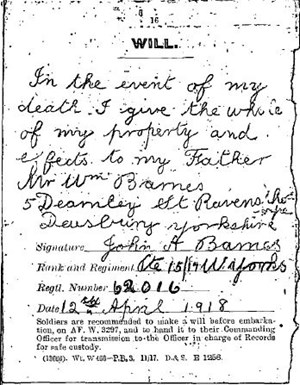 16
WILL.
In the event of my
death I give the whole
of my property and
effects to my Father
Mr Wm Barnes
5 Dearnley St Ravens Tho-
rpe
Dewsbury Yorkshire
Signature John A Barnes
Rank and Regiment Pte 15/17 W Yorks
Regtl. Number 62016
Date 12th April 1918
Soldiers are recommended to make a will before embarka-
tion, on AF. W. 3297, and to hand it to their Commanding
Officer for transmission to the Officer in charge of Records
for safe custody.
Wt. W 6 P.B.3. 11/17. D. & S. E 1256.